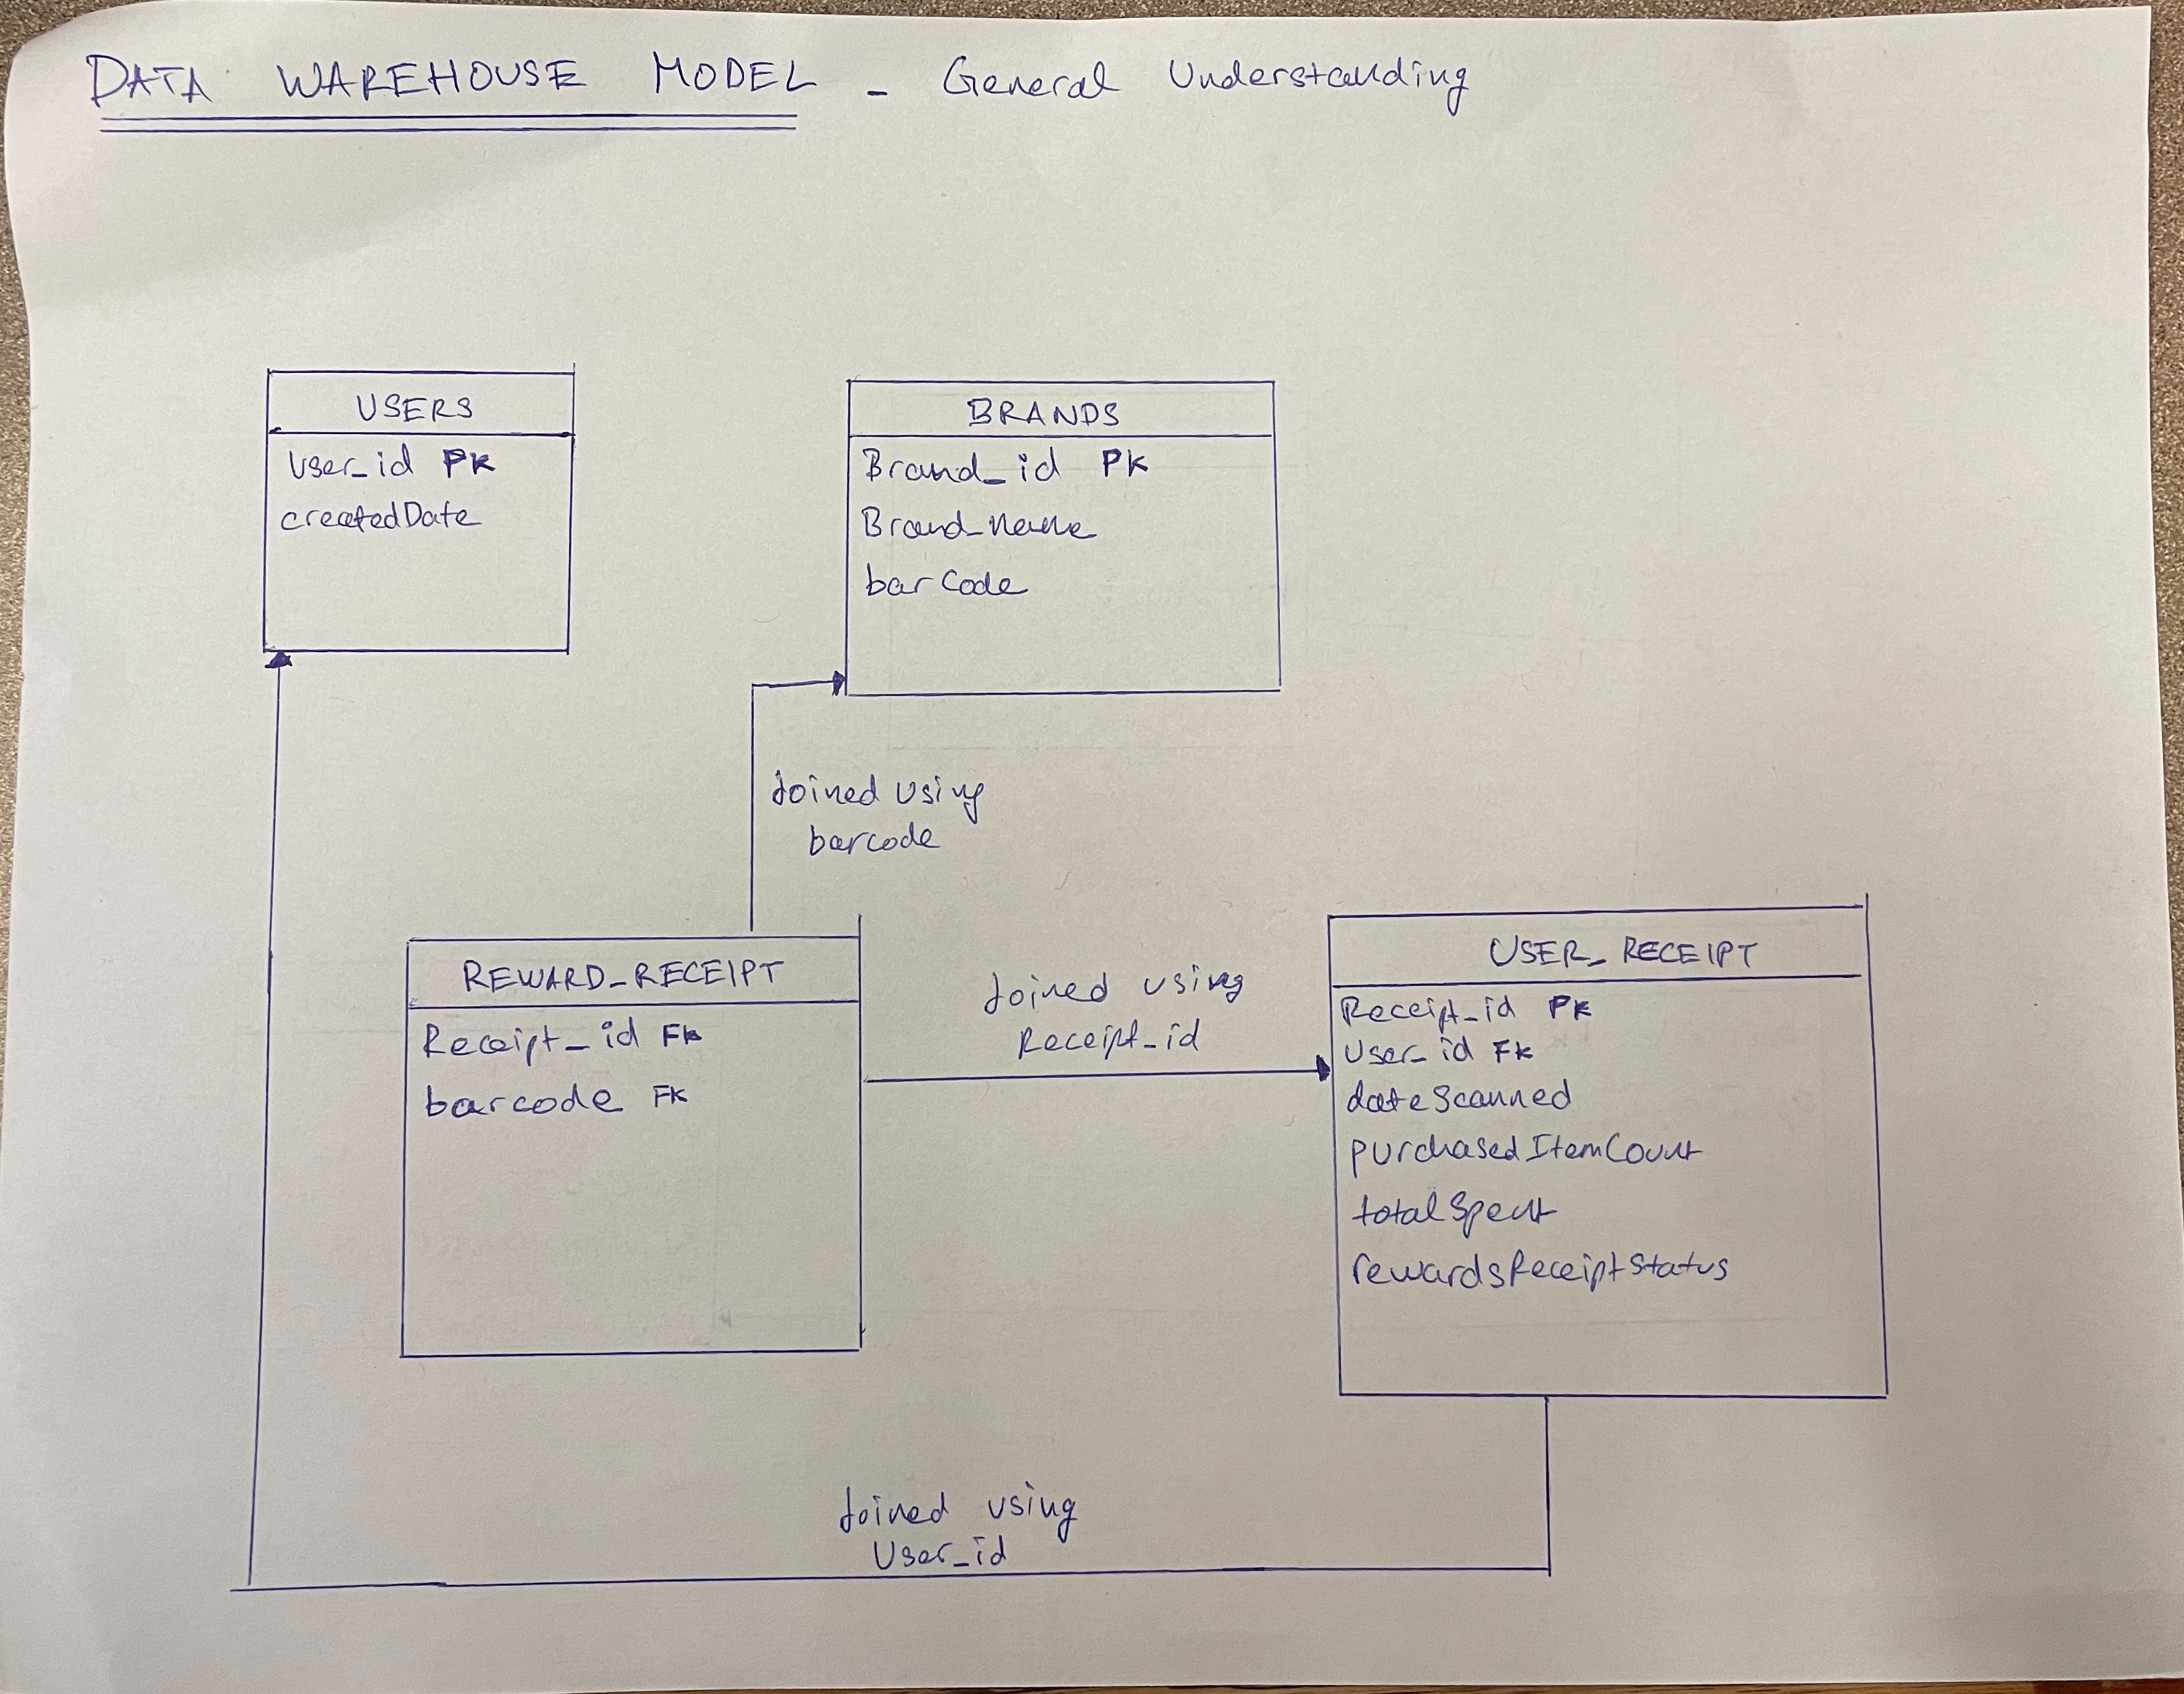 DATA WAREHOUSE MODEL - General Understanding
USERS
User_id PK
createdDate
BRANDS
Brand_id PK
Brand_Name
barCode
Joined Using
barcode
REWARD_RECEIPT
Receipt_id FK
barcode FK
Joined using
Receipt_id
USER_RECEIPT
Receipt_id PK
User_id FK
dateScanned
purchasedItemCount
totalSpent
rewardsReceiptStatus
Joined using
User_id